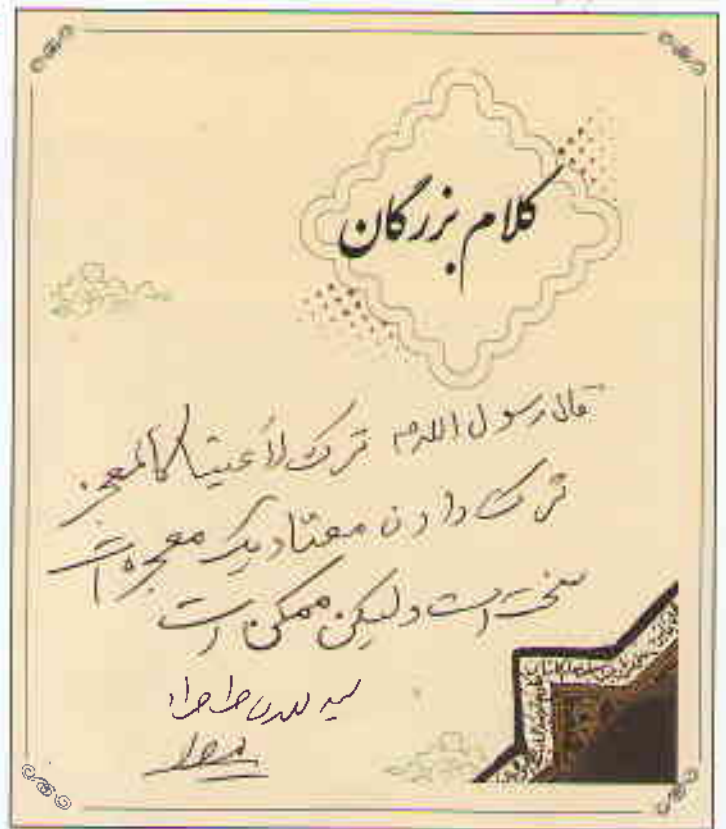 کلام بزرگان
قال رسول الله ترک الأعتیاد کالمعجز
ترک دادن معتاد یک معجزه است
سخت است ولیکن ممکن است
سید